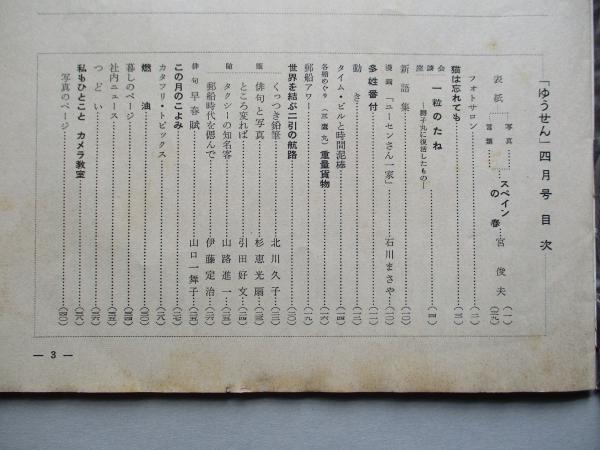 「ゆうせん」四月号 目次
表紙 写真……スペインの春……宮 俊夫……(一)
言葉……(元)
フォトサロン……(二)
猫は忘れても……
座談会 一粒のたね……(四)
―獅子丸に復活したもの―
新語集……(一〇)
漫画「ユーセンさん一家」……石川まさや……(一〇)
多姓番付……(一一)
動き……(一二)
タイム・ビルと時間泥棒……(一四)
各船めぐり 重量貨物……(一六)
郵船アワー……(一九)
世界を結ぶ二引の航路……(二〇)
くっつき鉛筆……北川久子……(二二)
俳句と写真……杉恵光扇……(二三)
ところ変れば……引田好文……(二四)
随 タクシーの知名客……山路進一……(二五)
郵船時代を偲んで……伊藤定治……(二六)
俳句 早春賦……山口一舞子……
この月のこよみ……(二七)
カタフリ・トピックス……(二八)
燃油……(三〇)
暮しのページ……(三四)
社内ニュース……(三五)
つどい……(三六)
私もひとこと カメラ教室……(三八)
写真のページ……(四〇)
― 3 ―